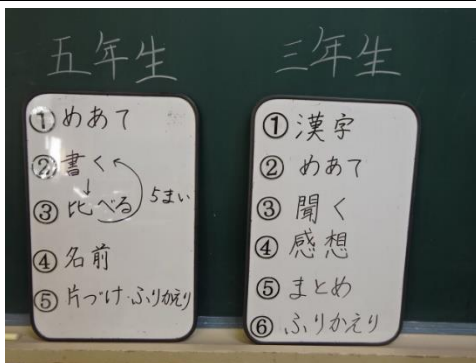 五年生
①めあて
②書く
↓
③比べる
5まい
④名前
⑤片づけ・ふりかえり
三年生
①漢字
②めあて
③聞く
④感想
⑤まとめ
⑥ふりかえり